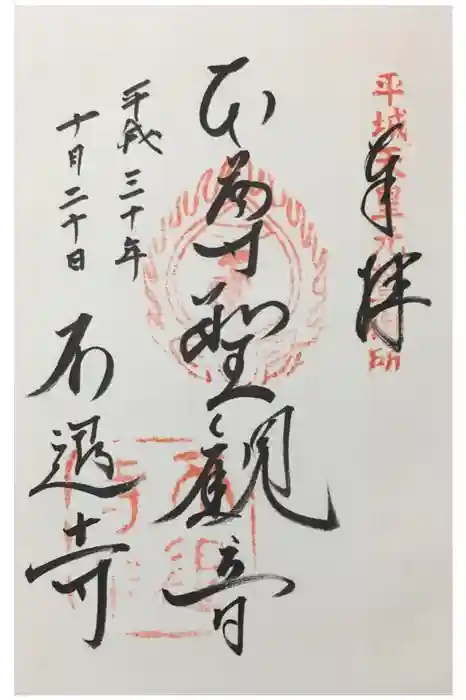 平城天皇
奉拝
本尊聖観音
平成三十年
十月二十日
不退寺